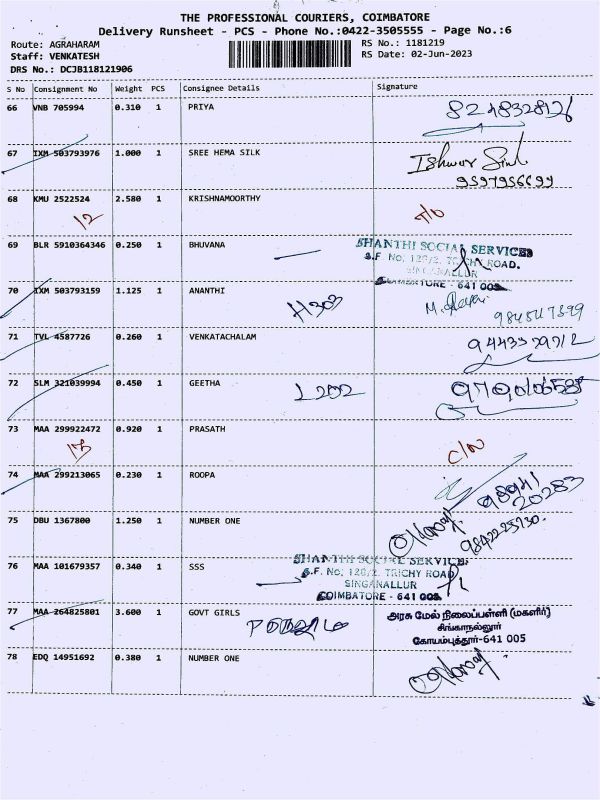 THE PROFESSIONAL COURIERS, COIMBATORE
Delivery Runsheet - PCS - Phone No.:0422-3505555 - Page No.:6
Route: AGRAHARAM
RS No.: 1181219
Staff: VENKATESH
RS Date: 02-Jun-2023
DRS No.: DCJB118121906
S No Consignment No Weight PCS Consignee Details Signature
66 VNB 705994 0.310 1 PRIYA
67 IXM 503793976 1.000 1 SREE HEMA SILK
9597956699
68 KMU 2522524 2.580 1 KRISHNAMOORTHY
12
69 BLR 5910364346 0.250 1 BHUVANA
SHANTHI SOCIAL SERVICES
S.F. No. 126/2, TRICHY ROAD,
SINGANALLUR
COIMBATORE - 641 005
70 IXM 503793159 1.125 1 ANANTHI H303
71 TVL 4587726 0.260 1 VENKATACHALAM
72 SLM 321039994 0.450 1 GEETHA L202
73 MAA 299922472 0.920 1 PRASATH
13
74 MAA 299213065 0.230 1 ROOPA
98941
20283
75 DBU 1367800 1.250 1 NUMBER ONE
76 MAA 101679357 0.340 1 SSS
SHANTHI SOCIAL SERVICES
S.F. No. 126/2, TRICHY ROAD
SINGANALLUR
COIMBATORE - 641 005
77 MAA 264825801 3.600 1 GOVT GIRLS
அரசு மேல் நிலைப்பள்ளி (மகளிர்)
சிங்காநல்லூர்
கோயம்புத்தூர்-641 005
78 EDQ 14951692 0.380 1 NUMBER ONE